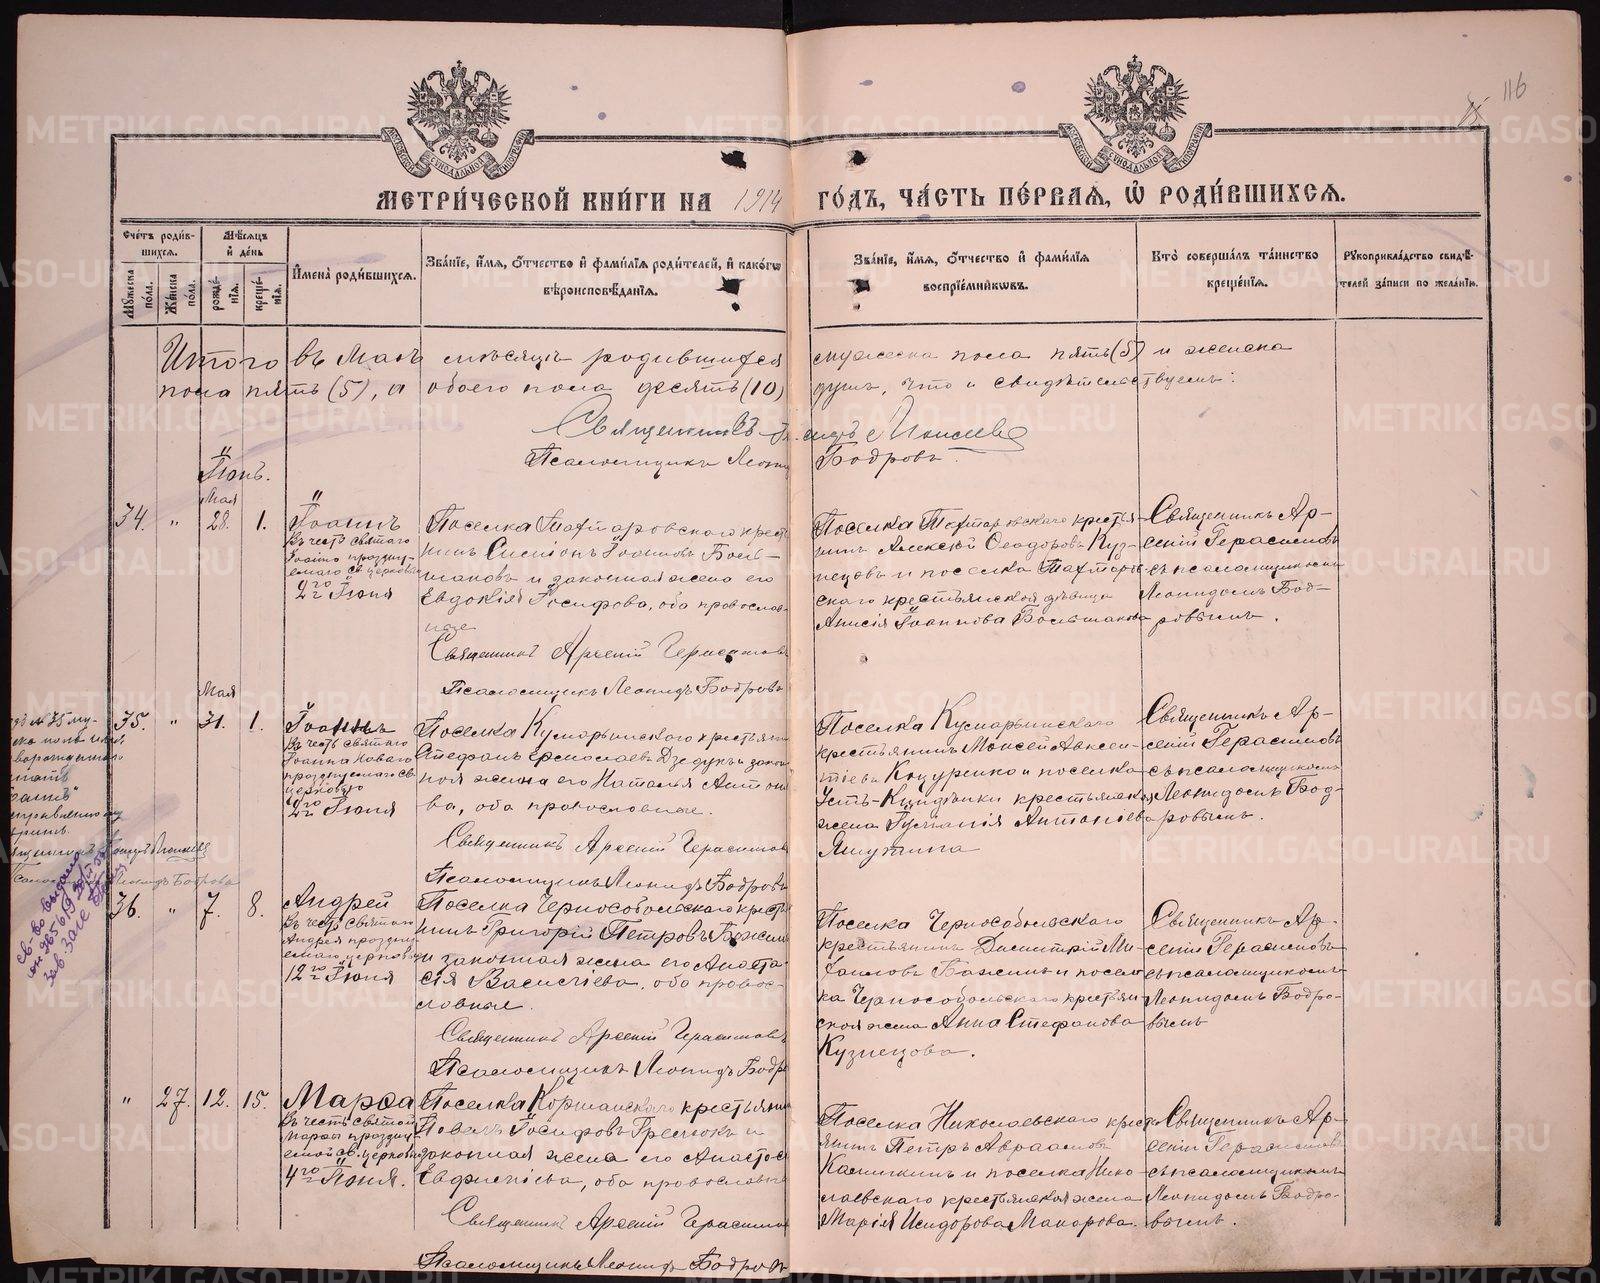 116
МЕТРИ́ЧЕСКОЙ КНИ́ГИ НА 1914 ГО́ДЪ, ЧА́СТЬ ПЕ́РВАѦ, Ѡ РОДИ́ВШИХСѦ.
Сче́тъ роди́вшихся.
Мѣсяцъ и де́нь
Мꙋжеска по́ла.
Же́нска по́ла.
рожде́нїѧ.
креще́нїѧ.
Имена̀ роди́вшихсѧ.
Зва́нїе, и́мѧ, о́тчество и фами́лїѧ роди́телей, и како́гѡ
вѣроисповѣ́данїѧ.
Зва́нїе, и́мѧ, о́тчество и фами́лїѧ
воспрїе́мникѡвъ.
Кто̀ соверша́лъ та́инство
креще́нїѧ.
Рꙋкоприкла́дство свидѣ́-
телей за́писи по жела́нїю.
Итого въ Маѣ мѣсяцѣ родившихся мужеска пола пять (5) и женска
пола пять (5), а обоего пола десять (10) душъ, что и свидѣтельствуемъ:
Священникъ
Псаломщикъ Леонидъ Бодровъ
Іюнь.
Мая
34. " 28. 1.
Іоаннъ
Въ честь святаго
Іоанна праздну-
емаго св. церковью
2го Іюня
Поселка Тахтаровскаго крест
Іоанновъ Боль-
шаковъ и законная жена его
Евдокія Іосифова, оба православ-
ные
Священникъ Арсеній Герасимовъ
Псаломщикъ Леонидъ Бодровъ
Поселка Тахтаровскаго крестья-
нинъ Алексѣй Ѳеодоровъ Куз-
нецовъ и поселка Тахтаров-
скаго крестьянская дѣвица
Анисія Іоаннова Большакова
Священникъ Ар-
сеній Герасимовъ
съ псаломщикомъ
Леонидомъ Бод-
ровымъ.
Мая
35. " 31. 1.
Іоаннъ
Въ честь святаго
Іоанна Новаго
празднуемаго св.
церковью
2го Іюня
Поселка крестьянинъ
Стефанъ Ермолаевъ и закон
ная жена его Наталья Антоно
ва, оба православные.
Священникъ Арсеній Герасимовъ
Псаломщикъ Леонидъ Бодровъ
Поселка
крестьянинъ Моисей Авксен-
тіевъ и поселка
крестьянская
жена Антоніева
Священникъ Ар-
сеній Герасимовъ
съ псаломщикомъ
Леонидомъ Бод-
ровымъ.
36. " 7. 8.
Андрей
Въ честь святаго
Андрея праздну-
емаго церковью
12го Іюня
Поселка Чернособольскаго крест
нинъ Григорій Петровъ Бажин
и законная жена его Анаста-
сія Васильева, оба правос-
лавные.
Священникъ Арсеній Герасимовъ
Псаломщикъ Леонидъ Бодр
Поселка Чернособольскаго
крестьянинъ Димитрій Ми-
хаиловъ Бажинъ и посел-
ка Чернособольскаго крестьян
ская жена Анна Стефанова
Кузнецова.
Священникъ Ар-
сеній Герасимовъ
съ псаломщикомъ
Леонидомъ Бодро-
вымъ
" 27. 12. 15.
Марѳа
Въ честь святой
Марѳы праздну-
емой св. церковью
4го Іюня.
Поселка крестьянин
Павелъ Іосифовъ и
законная жена его Анастас
оба православные
Священникъ Арсеній Герасимо
Псаломщикъ Леонидъ Бодровъ
Поселка Николаевскаго крестья
янинъ Петръ Авраамовъ
Калинкинъ и поселка Нико-
лаевскаго крестьянская жена
Марія Исидорова Макарова.
Священникъ Ар-
сеній Герасимовъ
съ псаломщикомъ
Леонидомъ Бодро-
вымъ.
METRIKI.GASO-URAL.RU